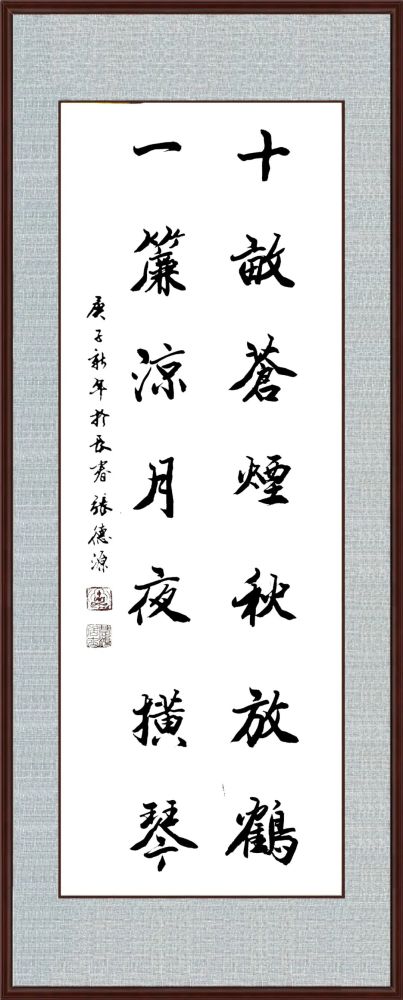 十畝蒼煙秋放鶴
一簾涼月夜橫琴
庚子新年於長春張德源